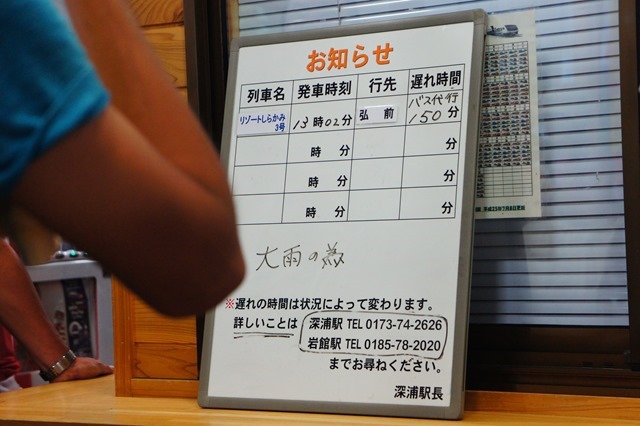 お知らせ
列車名 発車時刻 行先 遅れ時間
リゾートしらかみ
3号
13時02分
弘前
バス代行
150分
時 分 分
時 分 分
時 分 分
大雨の為
※遅れの時間は状況によって変わります。
詳しいことは 深浦駅 TEL 0173-74-2626
岩館駅 TEL 0185-78-2020
までお尋ねください。
深浦駅長